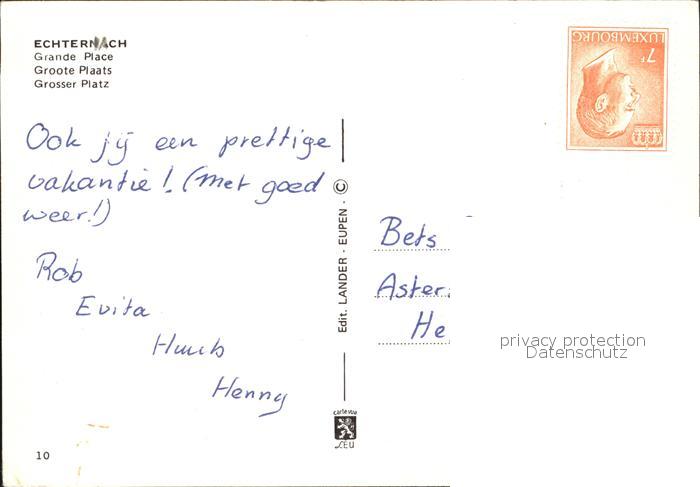 ECHTERNACH
Grande Place
Groote Plaats
Grosser Platz
Ook jij een prettige
vakantie! (met goed
weer!)
Rob
Evita
Huub
Henny
10
Edit. LANDER - EUPEN - ©
carte vue
LEU
LUXEMBOURG
7F
Bets
Aster
He
privacy protection
Datenschutz